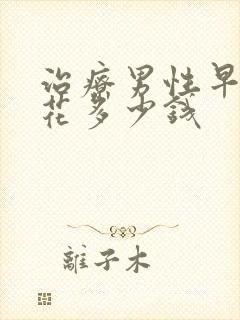 治療男性早
花多少钱
離子木